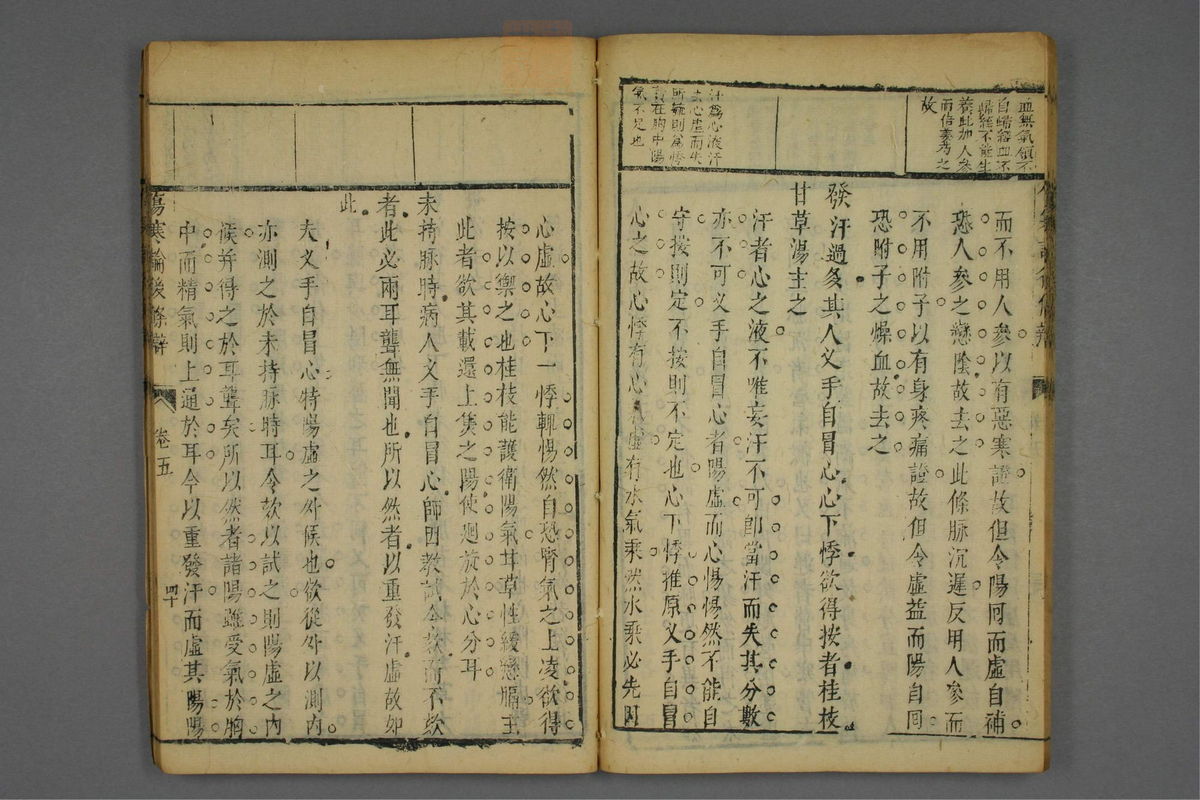 血無氣領不
自歸經血不
歸經不能生
養此加人參
而倍姜芍之
故
汗爲心液汗
去心虛而失
所輔則爲悸
責在胸中陽
氣不足也
而不用人參以有惡寒證故但令陽回而虛自補
恐人參之戀陰故去之此條脉沉遲反用人參而
不用附子以有身疼痛證故但令虛益而陽自回
恐附子之燥血故去之
發汗過多其人叉手自冒心心下悸欲得按者桂枝
甘草湯主之
汗者心之液不唯妄汗不可卽當汗而失其分數
亦不可叉手自冒心者陽虛而心惕惕然不能自
守按則定不按則不定也心下悸推原叉手自冒
心之故心悸有心氣虛有水氣乘然水乘必先因
心虛故心下一悸輒惕然自恐腎氣之上凌欲得
按以禦之也桂枝能護衛陽氣甘草性緩戀膈主
此者欲其載還上焦之陽使廻旋於心分耳
未持脉時病人叉手自冒心師因教試令欬而不欬
者此必兩耳聾無聞也所以然者以重發汗虛故如
此
夫叉手自冒心特陽虛之外候也欲從外以測內
亦測之於未持脉時耳令欬以試之則陽虛之內
候并得之於耳聾矣所以然者諸陽雖受氣於胸
中而精氣則上通於耳今以重發汗而虛其陽陽
傷寒論後條辯
卷五
四十